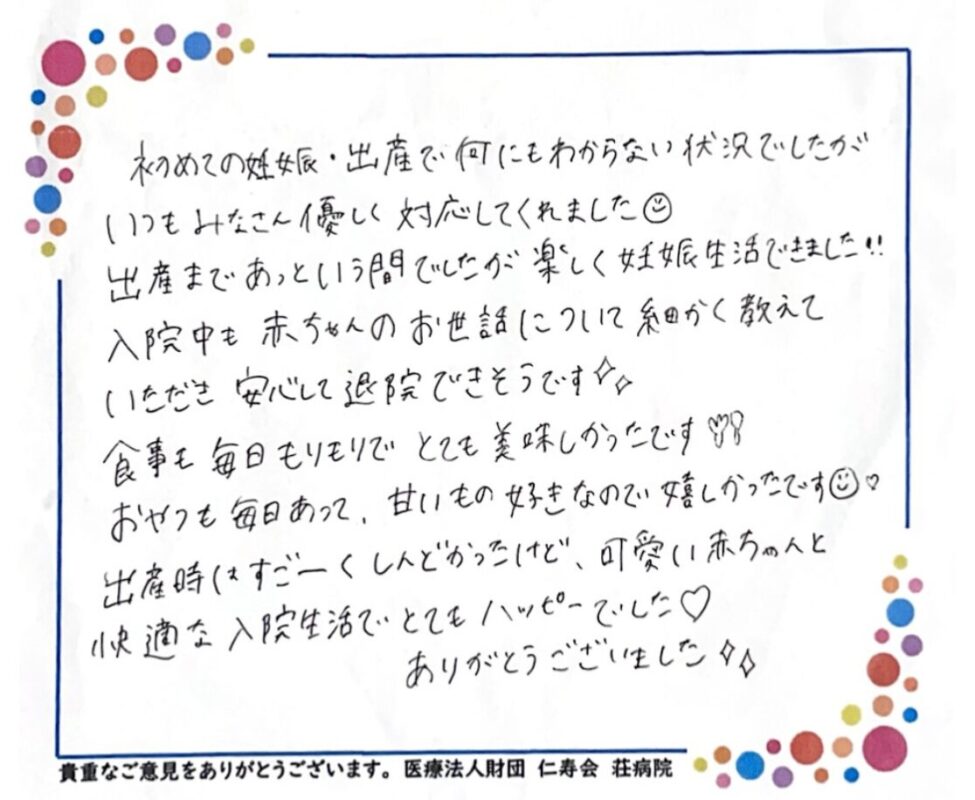 初めての妊娠・出産で何にもわからない状況でしたが
いつもみなさん優しく対応してくれました☺
出産まであっという間でしたが楽しく妊娠生活できました!!
入院中も赤ちゃんのお世話について細かく教えて
いただき安心して退院できそうです✧✧
食事も毎日もりもりでとても美味しかったです
おやつも毎日あって、甘いもの好きなので嬉しかったです☺♡
出産時はすごーくしんどかったけど、可愛い赤ちゃんと
快適な入院生活でとてもハッピーでした♡
ありがとうございました✧✧
貴重なご意見をありがとうございます。医療法人財団 仁寿会 荘病院